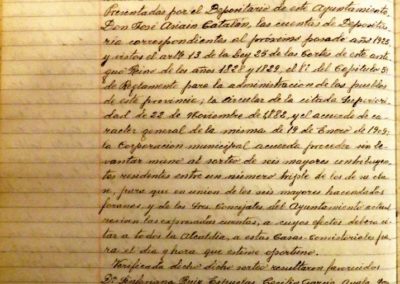 Presentadas por el Depositario de este Ayuntamiento,
Don José Asiain Catalán, las cuentas de Deposita-
rio correspondientes al próximo pasado año 1925
y vistos el artº 13 de la Ley 25 de las Cortes de este anti-
guo Reino de los años 1828 y 1829, el 8º del Capítulo 5º
de Reglamento para la administración de los pueblos
de esta provincia; la Circular de la citada Superiori-
dad de 22 de Noviembre de 1882, y el acuerdo de ca-
rácter general de la misma de 19 de Enero de 1909;
la Corporación municipal acuerda proceder sin le-
vantar mano al sorteo de seis mayores contribuyen-
tes residentes entre un número triple de los de su cla-
se, para que en unión de los seis mayores hacendados
foranos y de los Tres Concejales del Ayuntamiento
revisen las expresadas cuentas, a cuyos efectos deberá ci-
tar a todos la Alcaldía, a estas Casas Consistoriales pa-
ra el día y hora que estime oportuno.
Verificado dicho sorteo resultaron favorecidos
Dn Ruiz Cecilio García